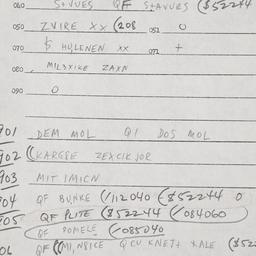 060 STAVUES QF STAVUES ($52244
050 ZVIRE XX (208 052 0
070 $ HULENEN XX 072 +
080 MIL3XIKE ZAXN
090 0
901 DEM MOL QI DOS MOL
902 ((KARGSE ZEXCIKJOR
903 MIT IMICN
904 QF BUNKE (/112040 ($52244 0
905 QF PLITE ($52244 (/084060
QF POMELE (/085040
06 QF ((MI,N8ICE QICU KNE7+ XALE ($52